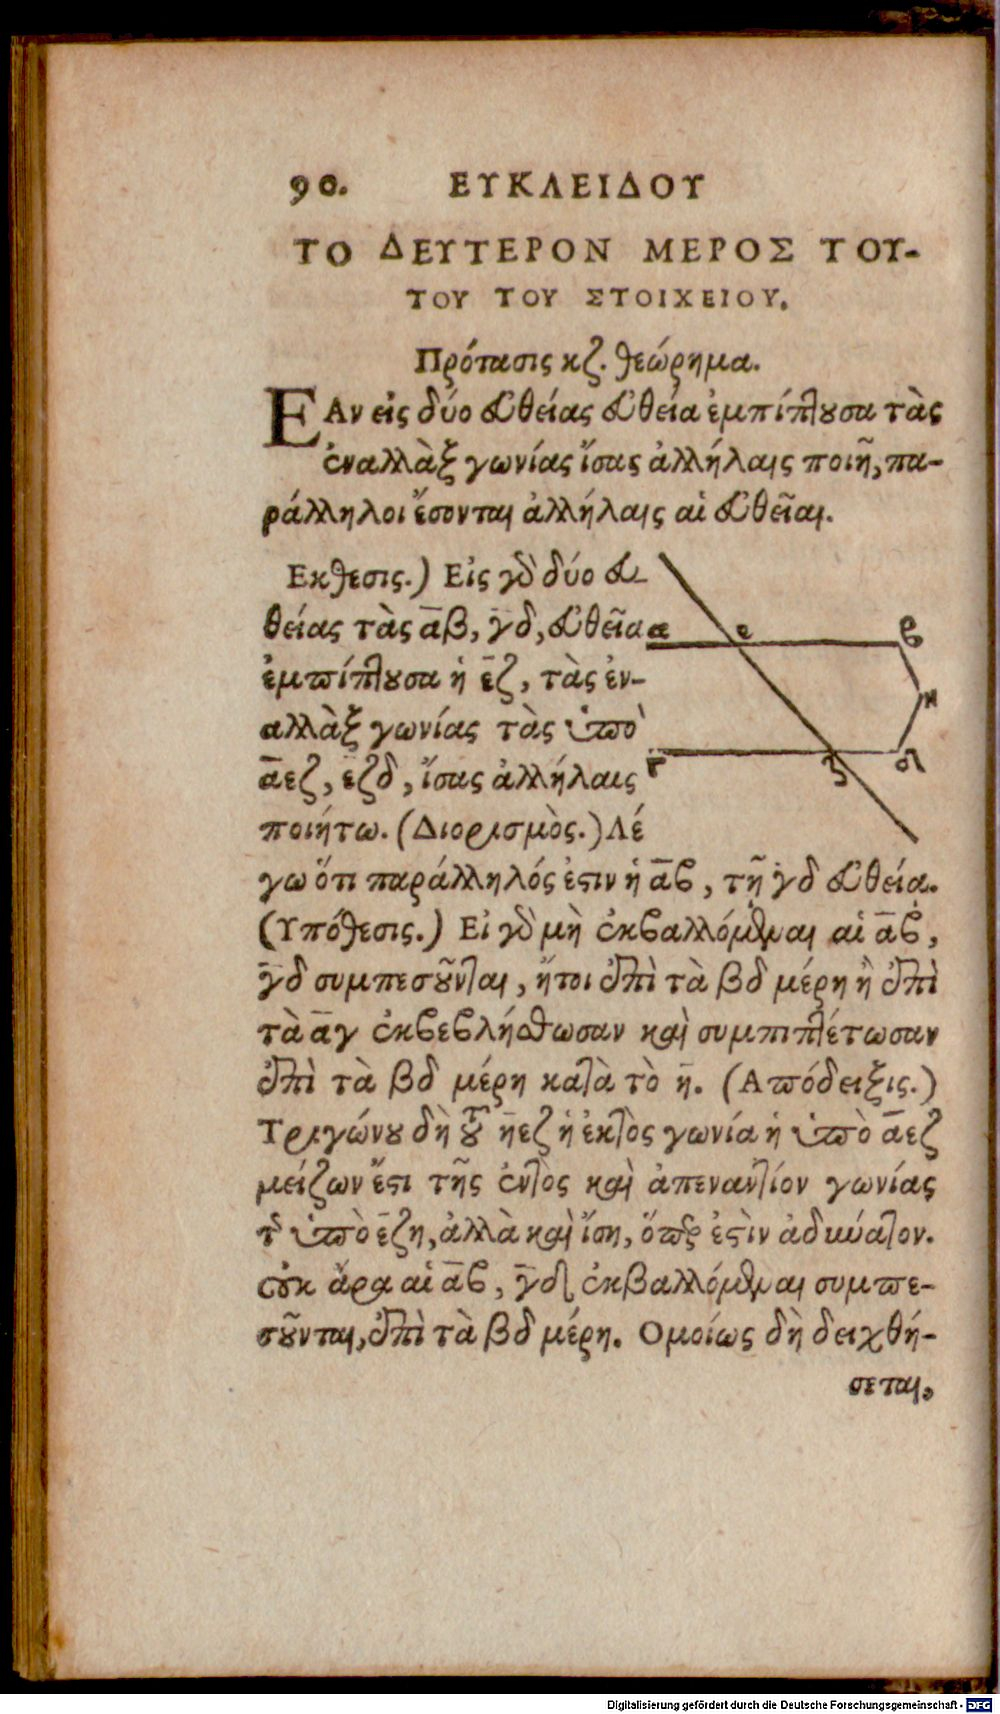 90. ΕΥΚΛΕΙΔΟΥ
ΤΟ ΔΕΥΤΕΡΟΝ ΜΕΡΟΣ ΤΟΥ-
ΤΟΥ ΤΟΥ ΣΤΟΙΧΕΙΟΥ.
Πρότασις κζ. θεώρημα.
ΕΑν εἰς δύο εὐθείας εὐθεία ἐμπίπτουσα τὰς
ἐναλλὰξ γωνίας ἴσας ἀλλήλαις ποιῆ, πα-
ράλληλοι ἔσονται ἀλλήλαις αἱ εὐθεῖαι.
Εκθεσις.) Εἰς γὸ δύο εὐ-
θείας τὰς α̅β, γ̅δ, εὐθεῖα
ἐμπίπτουσα ἡ ε̅ζ, τὰς ἐν-
αλλὰξ γωνίας τὰς ὑπὸ
α̅εζ, ε̅ζδ, ἴσας ἀλλήλαις
ποιήτω. (Διορισμὸς.) Λέ
γω ὅτι παράλληλός ἐστιν ἡ α̅β, τῆ γ̅δ εὐθείᾳ.
(Υπόθεσις.) Εἰ γὸ μὴ ἐκβαλλόμεναι αἱ α̅β,
γ̅δ συμπεσοῦνται, ἤτοι ἐπὶ τὰ βδ μέρη ἢ ἐπὶ
τὰ α̅γ ἐκβεβλήσθωσαν καὶ συμπιπτέτωσαν
ἐπὶ τὰ βδ μέρη κατὰ τὸ η̅. (Απόδειξις.)
Τριγώνου δὴ τοῦ η̅εζ ἡ ἐκτὸς γωνία ἡ ὑπὸ α̅εζ
μείζων ἔστι τῆς ἐντὸς καὶ ἀπεναντίον γωνίας
τῆς ὑπὸ ε̅ζη, ἀλλὰ καὶ ἴση, ὅπερ ἐστὶν ἀδύνατον.
οὐκ ἄρα αἱ α̅β, γ̅δ ἐκβαλλόμεναι συμπε-
σοῦνται, ἐπὶ τὰ βδ μέρη. Ομοίως δὴ δειχθή-
σεται,
α ε β
η
γ ζ δ
Digitalisierung gefördert durch die Deutsche Forschungsgemeinschaft - DFG